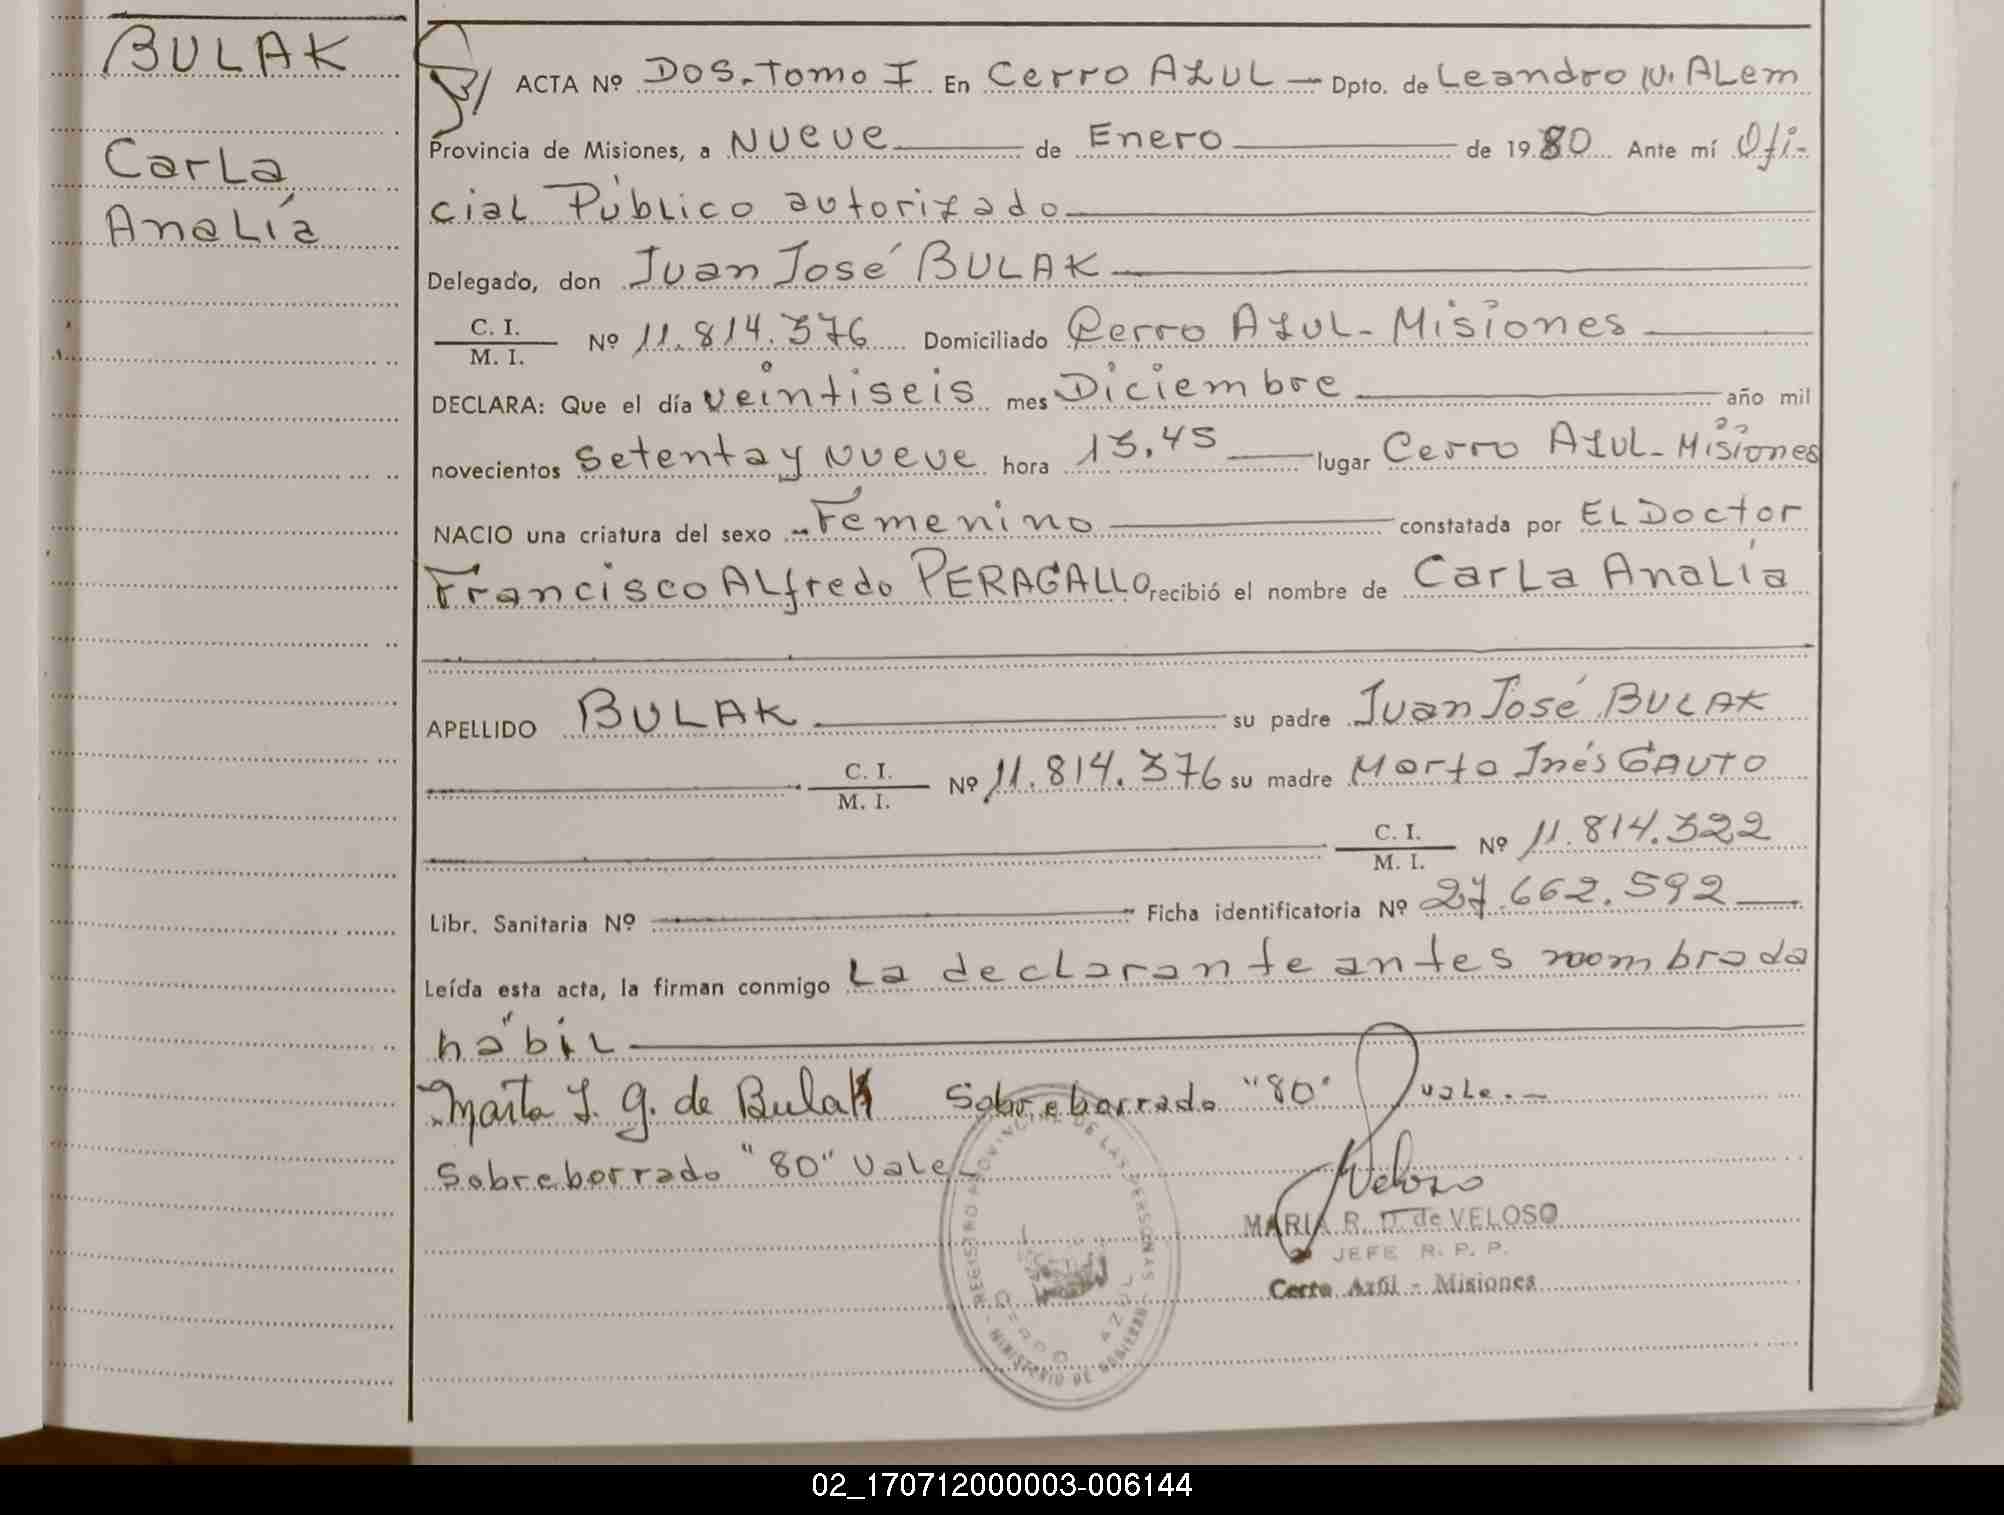 BULAK
Carla
Analía
ACTA Nº Dos.-Tomo I En Cerro Azul — Dpto. de Leandro N. Alem
Provincia de Misiones, a Nueve de Enero de 1980 Ante mí Ofi-
cial Público autorizado
Delegado, don Juan José BULAK
C. I.
M. I. Nº 11.814.376 Domiciliado Cerro Azul - Misiones
DECLARA: Que el día veintiseis mes Diciembre año mil
novecientos setenta y nueve hora 13,45 lugar Cerro Azul - Misiones
NACIO una criatura del sexo Femenino constatada por El Doctor
Francisco Alfredo PERAGALLO recibió el nombre de Carla Analía
APELLIDO BULAK su padre Juan José BULAK
C. I.
M. I. Nº 11.814.376 su madre Marta Inés GAUTO
C. I.
M. I. Nº 11.814.322
Libr. Sanitaria Nº Ficha identificatoria Nº 27.662.592
Leída esta acta, la firman conmigo La declarante antes nombrada
hábil
Marta I. G. de Bulak Sobreborrado "80" vale.-
Sobreborrado "80" Vale.-
Veloso
MARIA R. D. de VELOSO
JEFE R. P. P.
Cerro Azúl - Misiones
REGISTRO PROVINCIAL DE LAS PERSONAS
MINISTERIO DE GOBIERNO
CERRO AZUL
02_170712000003-006144